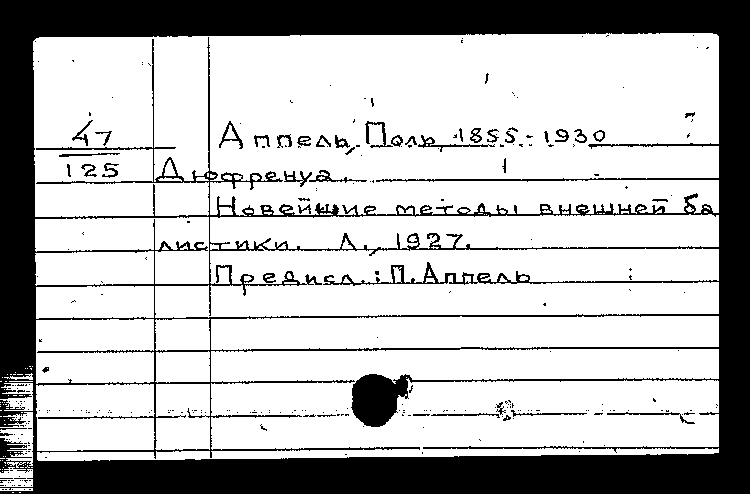 47
125
Аппель, Поль, 1855-1930
Дюфренуа.
Новейшие методы внешней ба
листики. Л., 1927.
Предисл.: П. Аппель